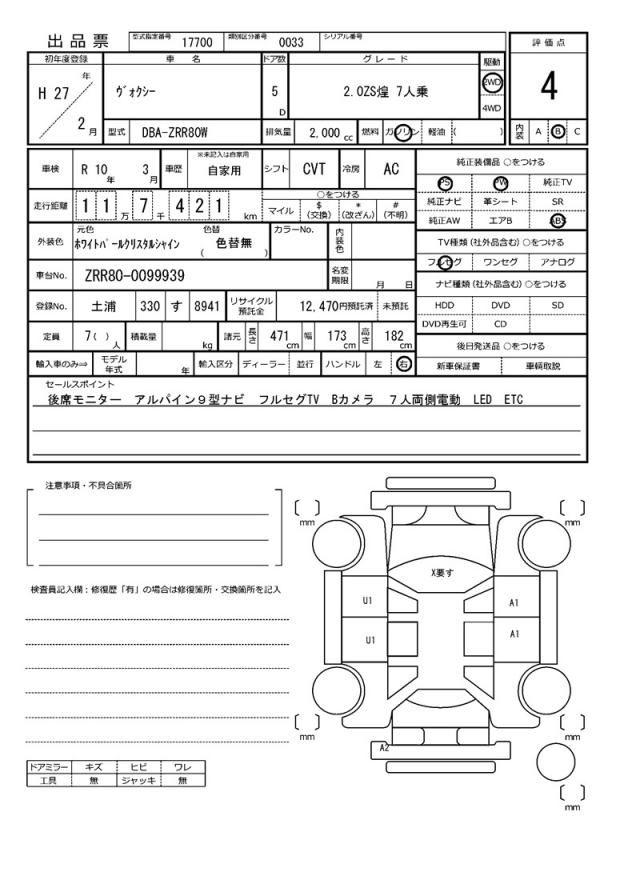 出品票 型式指定番号 17700 類別区分番号 0033 シリアル番号
評価点
4
内装 A B C
初年度登録 車名 ドア数 グレード 駆動
H 27 年 2 月
ヴォクシー 5 D 2.0ZS煌 7人乗 2WD 4WD
型式 DBA-ZRR80W 排気量 2,000 cc 燃料 ガソリン 軽油 ( )
車検 R 10 年 3 月 車歴 ※未記入は自家用 自家用 シフト CVT 冷房 AC
走行距離 1 1 万 7 千 4 2 1 km
○をつける
マイル $ (交換) * (改ざん) # (不明)
外装色 元色 ホワイトパールクリスタルシャイン 色替 ( 色替無 ) カラーNo. 内装色
車台No. ZRR80-0099939 名変期限 月 日
登録No. 土浦 330 す 8941 リサイクル預託金 12,470円預託済 未預託
定員 7( ) 人 積載量 kg 諸元 長さ 471 cm 幅 173 cm 高さ 182 cm
輸入車のみ⇒ モデル年式 年 輸入区分 ディーラー 並行 ハンドル 左 右
純正装備品 ○をつける
PS PW 純正TV
純正ナビ 革シート SR
純正AW エアB ABS
TV種類 (社外品含む) ○をつける
フルセグ ワンセグ アナログ
ナビ種類 (社外品含む) ○をつける
HDD DVD SD
DVD再生可 CD
後日発送品 ○をつける
新車保証書 車輌取説
セールスポイント
後席モニター アルパイン9型ナビ フルセグTV Bカメラ 7人両側電動 LED ETC
注意事項・不具合箇所
検査員記入欄：修復歴「有」の場合は修復箇所・交換箇所を記入
ドアミラー キズ ヒビ ワレ
工具 無 ジャッキ 無
mm
mm
X要す
U1
A1
U1
A1
mm
mm
A2
mm